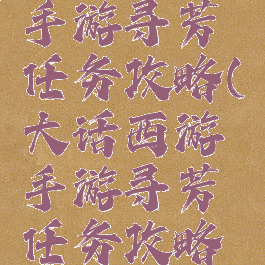 手游寻芳
任务攻略(
大话西游
手游寻芳
任务攻略